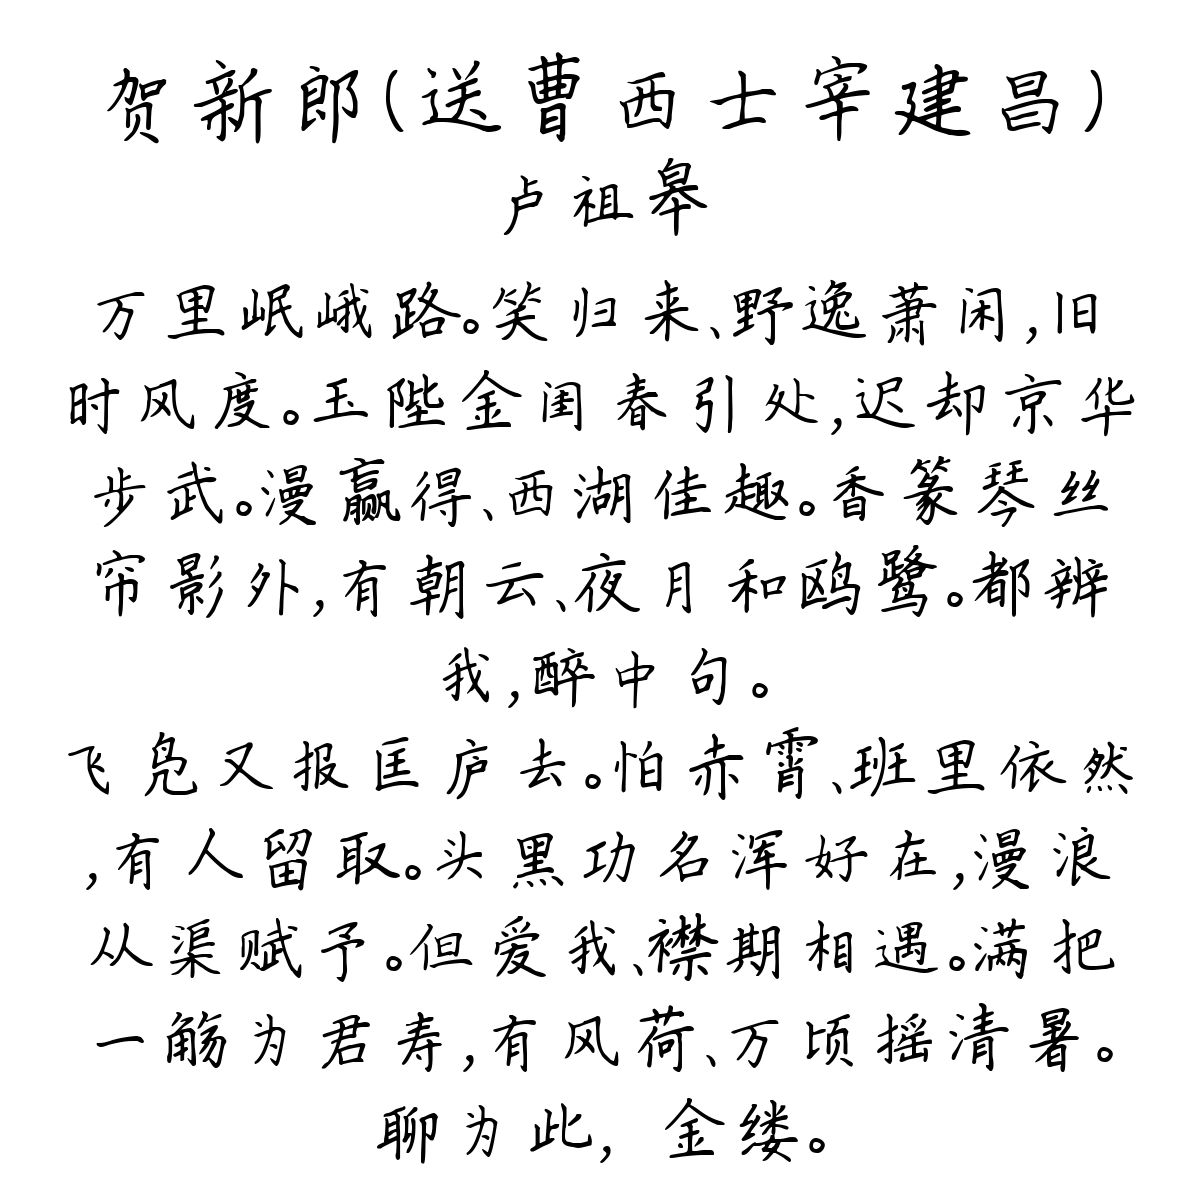 贺新郎(送曹西士宰建昌)
卢祖皋
万里岷峨路。笑归来、野逸萧闲,旧
时风度。玉陛金闺春引处,迟却京华
步武。漫赢得、西湖佳趣。香篆琴丝
帘影外,有朝云、夜月和鸥鹭。都辨
我,醉中句。
飞凫又报匡庐去。怕赤霄、班里依然
,有人留取。头黑功名浑好在,漫浪
从渠赋予。但爱我、襟期相遇。满把
一觞为君寿,有风荷、万顷摇清暑。
聊为此, 金缕。